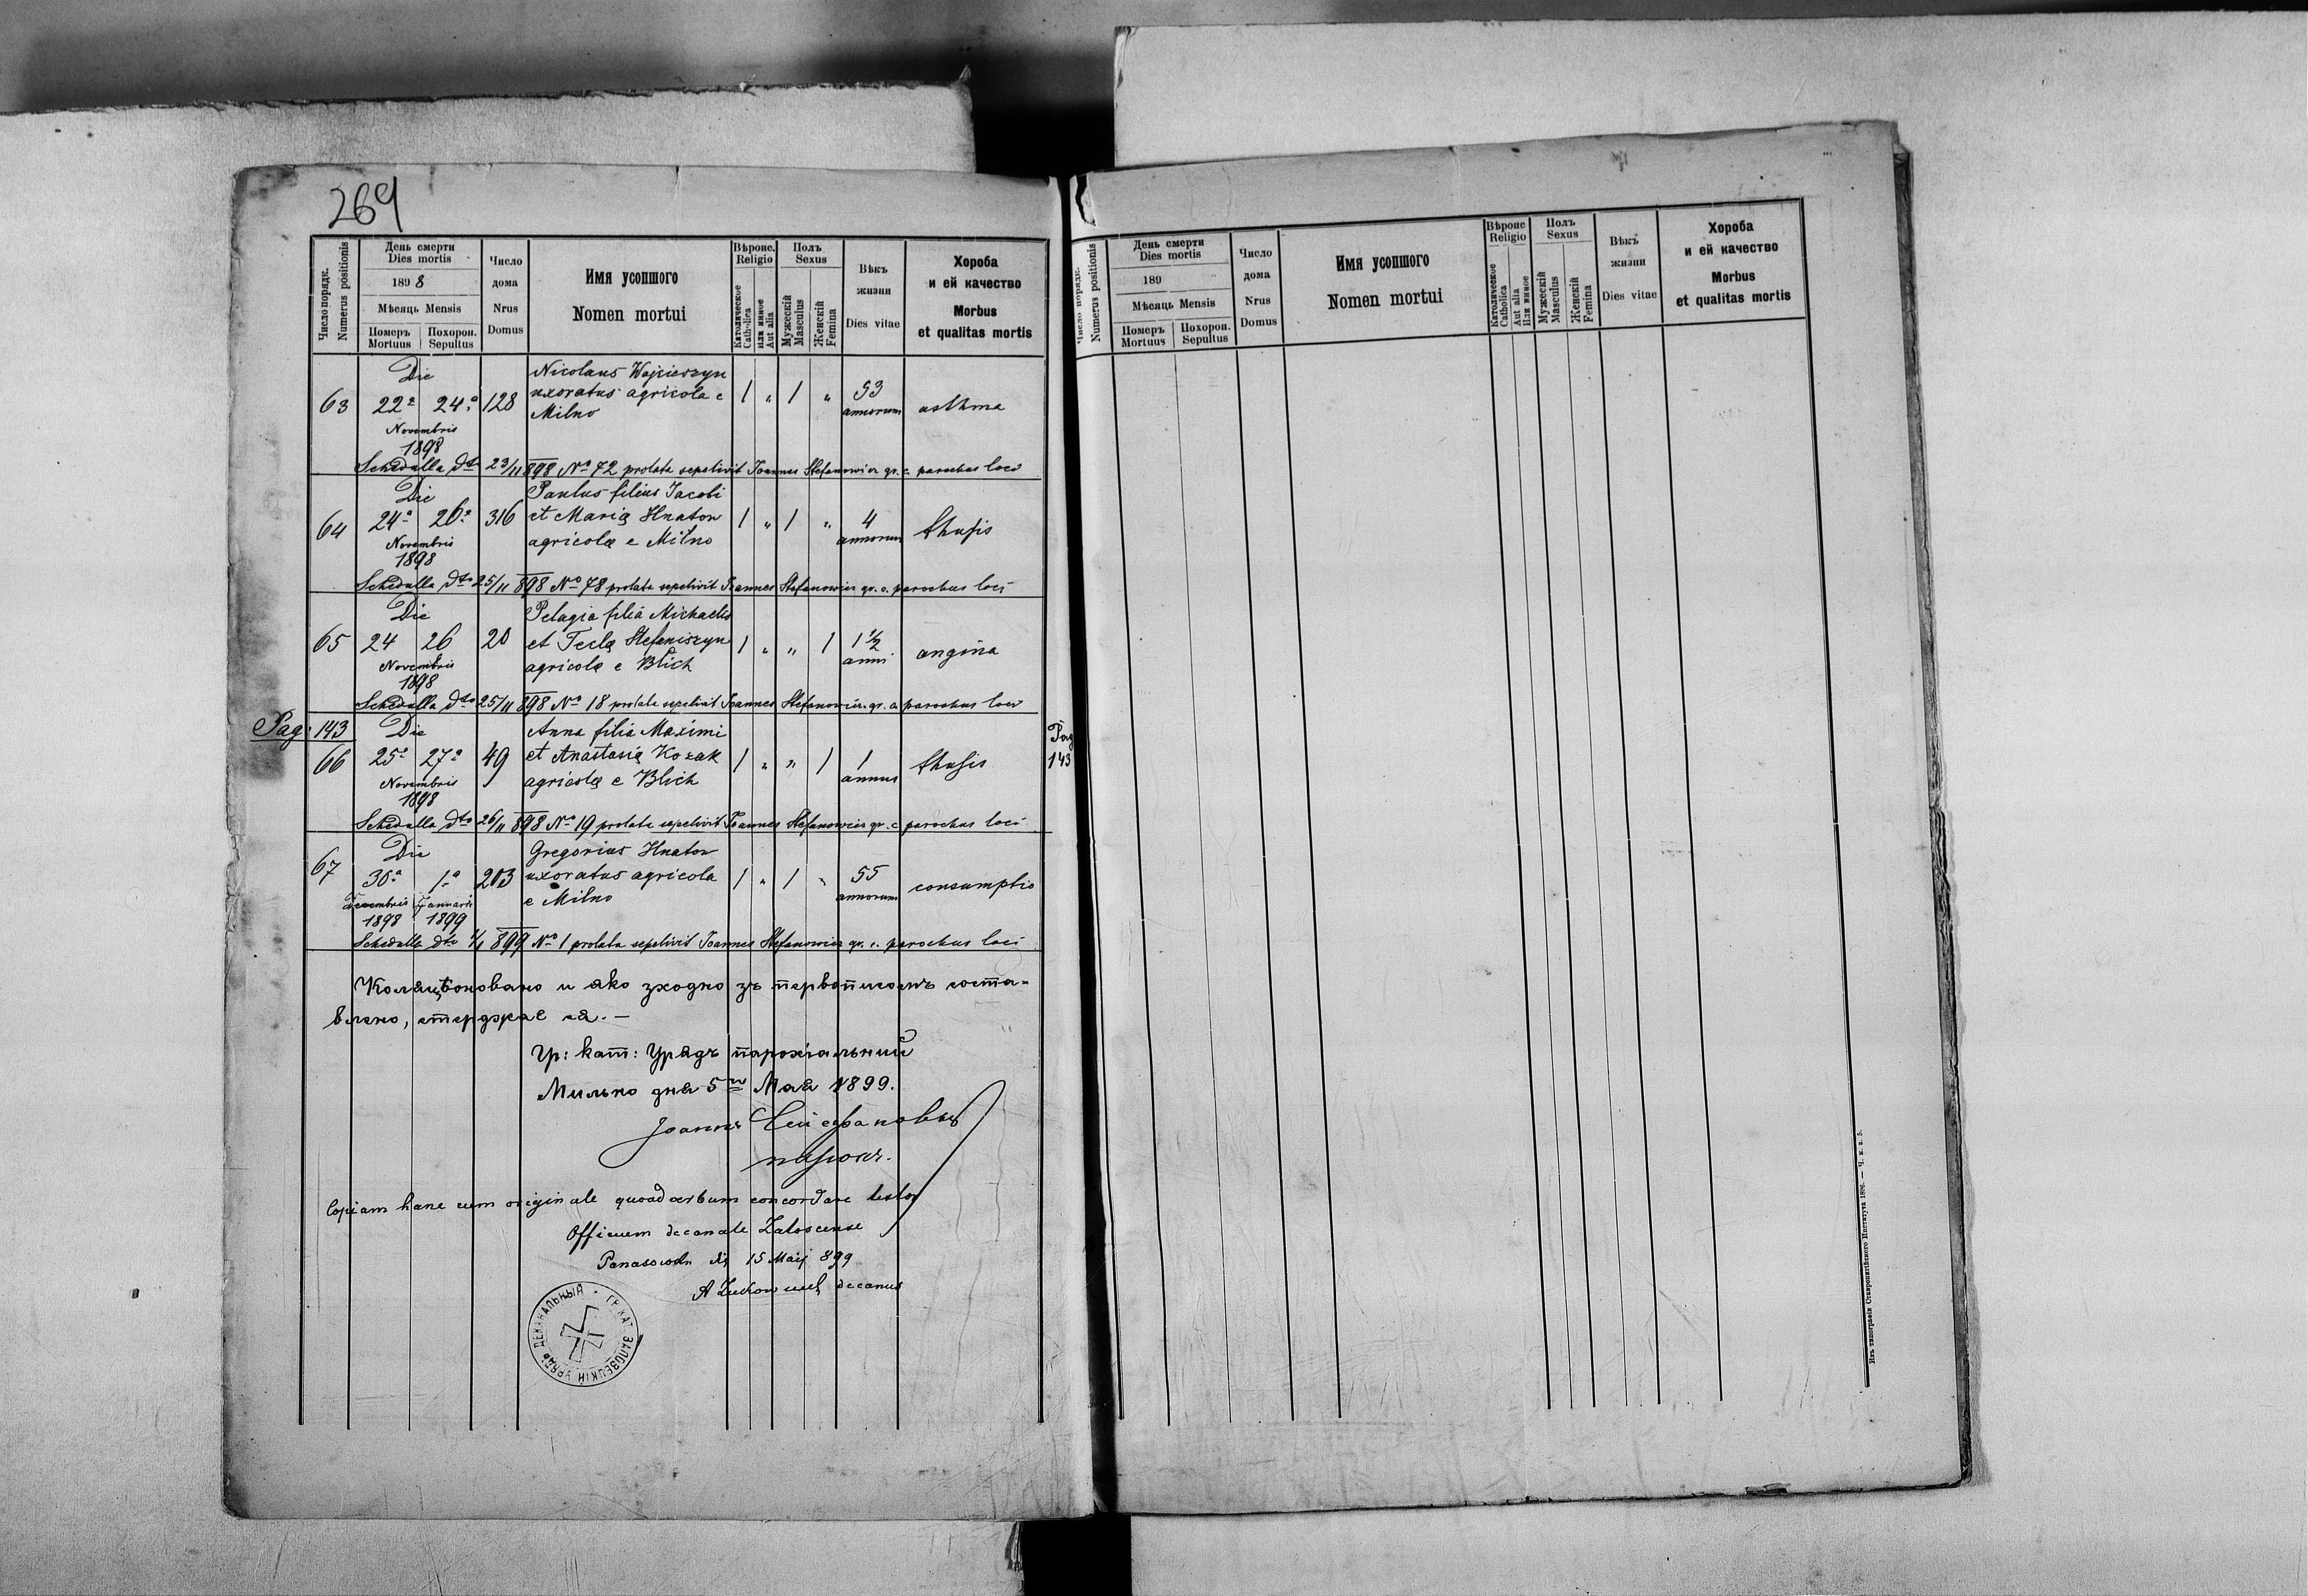 269
Число порядк.
Numerus positionis
День смерти
Dies mortis
1898
Мѣсяць Mensis
Померъ
Mortuus
Похорон.
Sepultus
Число
дома
Nrus
Domus
Имя усопшого
Nomen mortui
Вѣроис.
Religio
Католическое
Catholica
Или инное
Aut alia
Полъ
Sexus
Мужескій
Masculus
Женскій
Femina
Вѣкъ
жизни
Dies vitae
Хороба
и ей качество
Morbus
et qualitas mortis
Die
Nicolaus Wojcieszyn
63 22ª 24ª 128 uxoratus agricola e 1 " 1 " 53 asthma
Milno annorum
Novembris
1898
Schedulla dto 23/11 898 No 72 prolata sepelivit Joannes Stefanowicz gr. c. parochus loci
Die Paulus filius Jacobi
64 24ª 26ª 316 et Maria Hnatow 1 " 1 " 4 thusis
Novembris agricolæ e Milno annorum
1898
Schedulla dto 25/11 898 No 78 prolata sepelivit Joannes Stefanowicz gr. c. parochus loci
Die Pelagia filia Michaelis
65 24 26 20 et Tecla Stefaniszyn 1 " " 1 1 1/2 angina
Novembris agricolæ e Blich anni
1898
Schedulla dto 25/11 898 No 18 prolata sepelivit Joannes Stefanowicz gr. c. parochus loci
Pag: 143 Die Anna filia Maximi Pag
66 25ª 27ª 49 et Anastasia Kozak 1 " " 1 1 thusis 143
Novembris agricolæ e Blich annus
1898
Schedulla dto 26/11 898 No 19 prolata sepelivit Joannes Stefanowicz gr. c. parochus loci
Die Gregorius Hnatow
67 30ª 1ª 203 uxoratus agricola 1 " 1 " 55 consumptio
Decembris Januarii e Milno annorum
1898 1899
Schedulla dto 1/1 899 No 1 prolata sepelivit Joannes Stefanowicz gr. c. parochus loci
Коляціоновано и яко зходно зъ первописомъ соста-
влено, стерджае ся. —
Гр: кат: Урядъ парохіальный
Мильно дня 5го Мая 1899.
Іоаннъ Стефановичъ
парохъ.
Copiam hanc cum originale quoad verbum concordare testor
Officium decanale Zaloscense
15 Maij 899
decanus
УРЯДЪ ДЕКАНАЛЬНЫЙ · ГР. КАТ. ЗАЛОЗЕЦКІЙ
Число порядк.
Numerus positionis
День смерти
Dies mortis
189
Мѣсяць Mensis
Померъ
Mortuus
Похорон.
Sepultus
Число
дома
Nrus
Domus
Имя усопшого
Nomen mortui
Вѣроис
Religio
Католическое
Catholica
Aut alia
Или инное
Полъ
Sexus
Мужескій
Masculus
Женскій
Femina
Вѣкъ
жизни
Dies vitae
Хороба
и ей качество
Morbus
et qualitas mortis
Изъ типографіи Ставропигійского Института 1896. — Ч. в. 5.